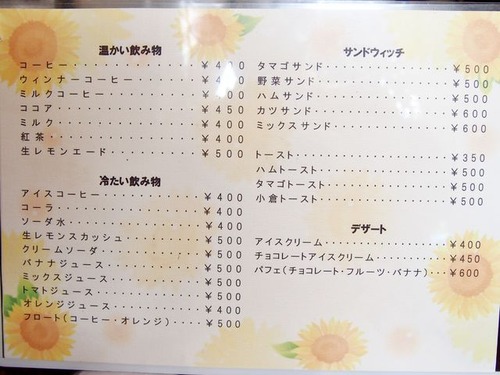 温かい飲み物
コーヒー・・・・・・・・・・・・・¥400
ウィンナーコーヒー・・・・・・・・¥400
ミルクコーヒー・・・・・・・・・・¥400
ココア・・・・・・・・・・・・・・¥450
ミルク・・・・・・・・・・・・・・¥400
紅茶・・・・・・・・・・・・・・・¥400
生レモンエード・・・・・・・・・・¥500
冷たい飲み物
アイスコーヒー・・・・・・・・・・¥400
コーラ・・・・・・・・・・・・・・¥400
ソーダ水・・・・・・・・・・・・・¥400
生レモンスカッシュ・・・・・・・・¥500
クリームソーダ・・・・・・・・・・¥500
バナナジュース・・・・・・・・・・¥500
ミックスジュース・・・・・・・・・¥500
トマトジュース・・・・・・・・・・¥500
オレンジジュース・・・・・・・・・¥400
フロート(コーヒー・オレンジ)・・・・¥500
サンドウィッチ
タマゴサンド・・・・・・・・・・・¥500
野菜サンド・・・・・・・・・・・・¥500
ハムサンド・・・・・・・・・・・・¥500
カツサンド・・・・・・・・・・・・¥600
ミックスサンド・・・・・・・・・・¥600
トースト・・・・・・・・・・・・・¥350
ハムトースト・・・・・・・・・・・¥500
タマゴトースト・・・・・・・・・・¥500
小倉トースト・・・・・・・・・・・¥500
デザート
アイスクリーム・・・・・・・・・・¥400
チョコレートアイスクリーム・・・・¥450
パフェ(チョコレート・フルーツ・バナナ)・・¥600